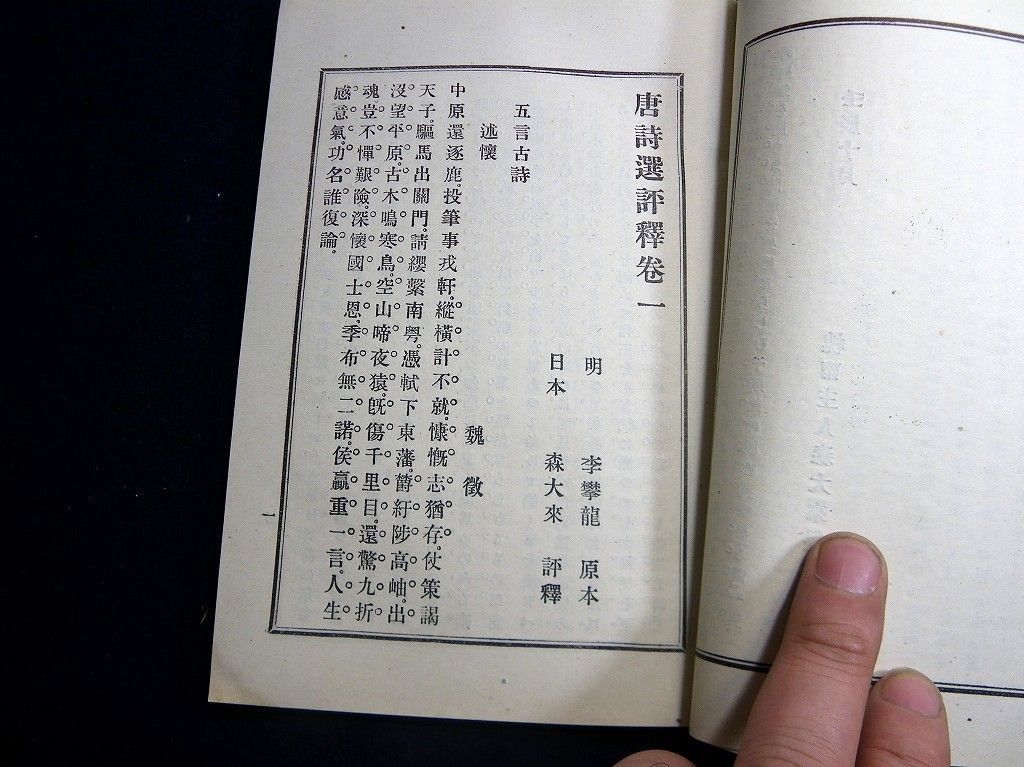 唐詩選評釋卷一
明　李攀龍　原本
日本　森大來　評釋
五言古詩
述懷
魏徵
中原還逐鹿。投筆事戎軒。縱橫計不就。慷慨志猶存。仗策謁
天子。驅馬出關門。請纓繫南粤。憑軾下東藩。欝紆陟高岫。出
沒望平原。古木鳴寒鳥。空山啼夜猿。旣傷千里目。還驚九折
魂。豈不憚艱險。深懷國士恩。季布無二諾。侯贏重一言。人生
感意氣。功名誰復論。
一